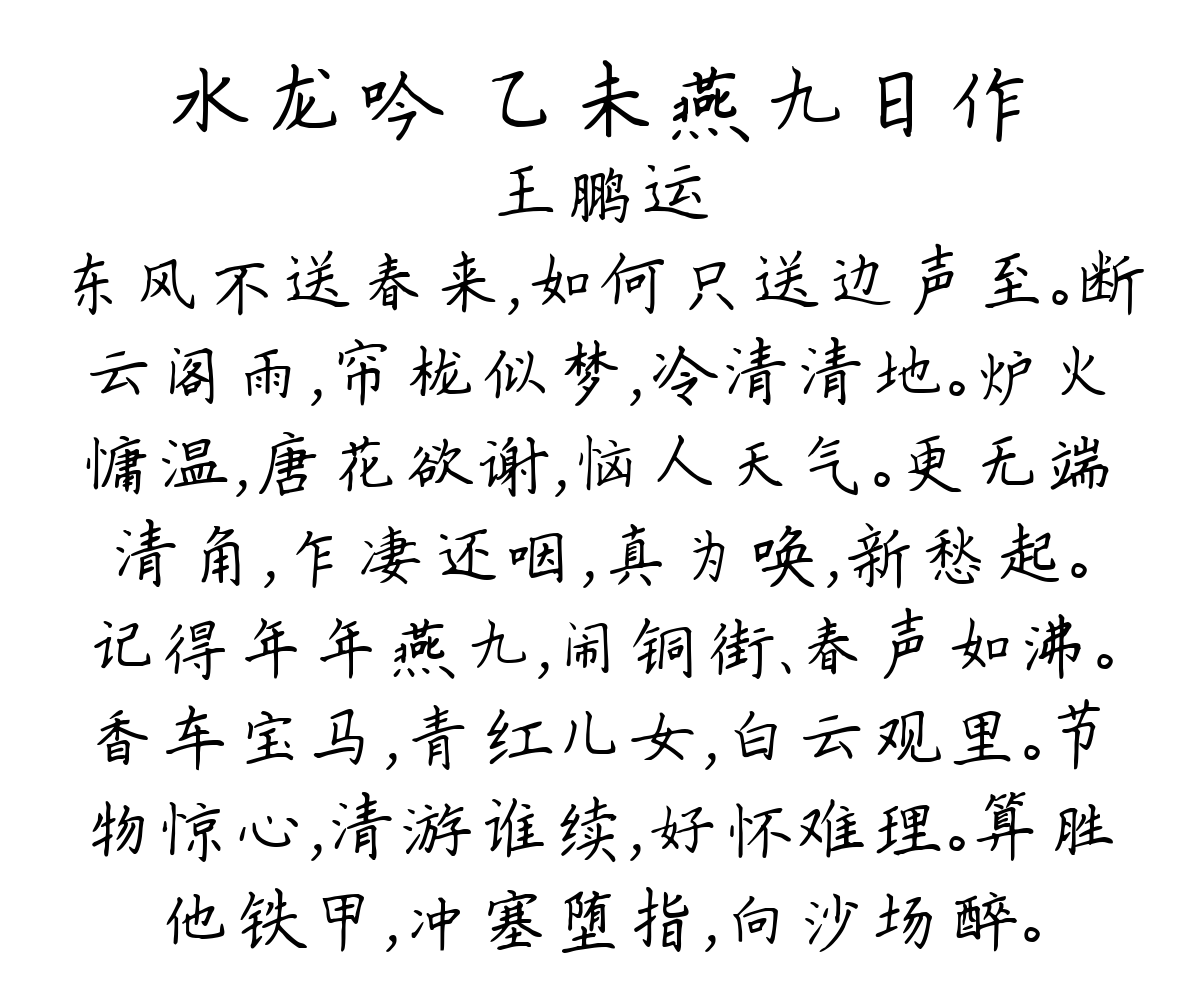 水龙吟 乙未燕九日作
王鹏运
东风不送春来,如何只送边声至。断
云阁雨,帘栊似梦,冷清清地。炉火
慵温,唐花欲谢,恼人天气。更无端
清角,乍凄还咽,真为唤,新愁起。
记得年年燕九,闹铜街、春声如沸。
香车宝马,青红儿女,白云观里。节
物惊心,清游谁续,好怀难理。算胜
他铁甲,冲塞堕指,向沙场醉。